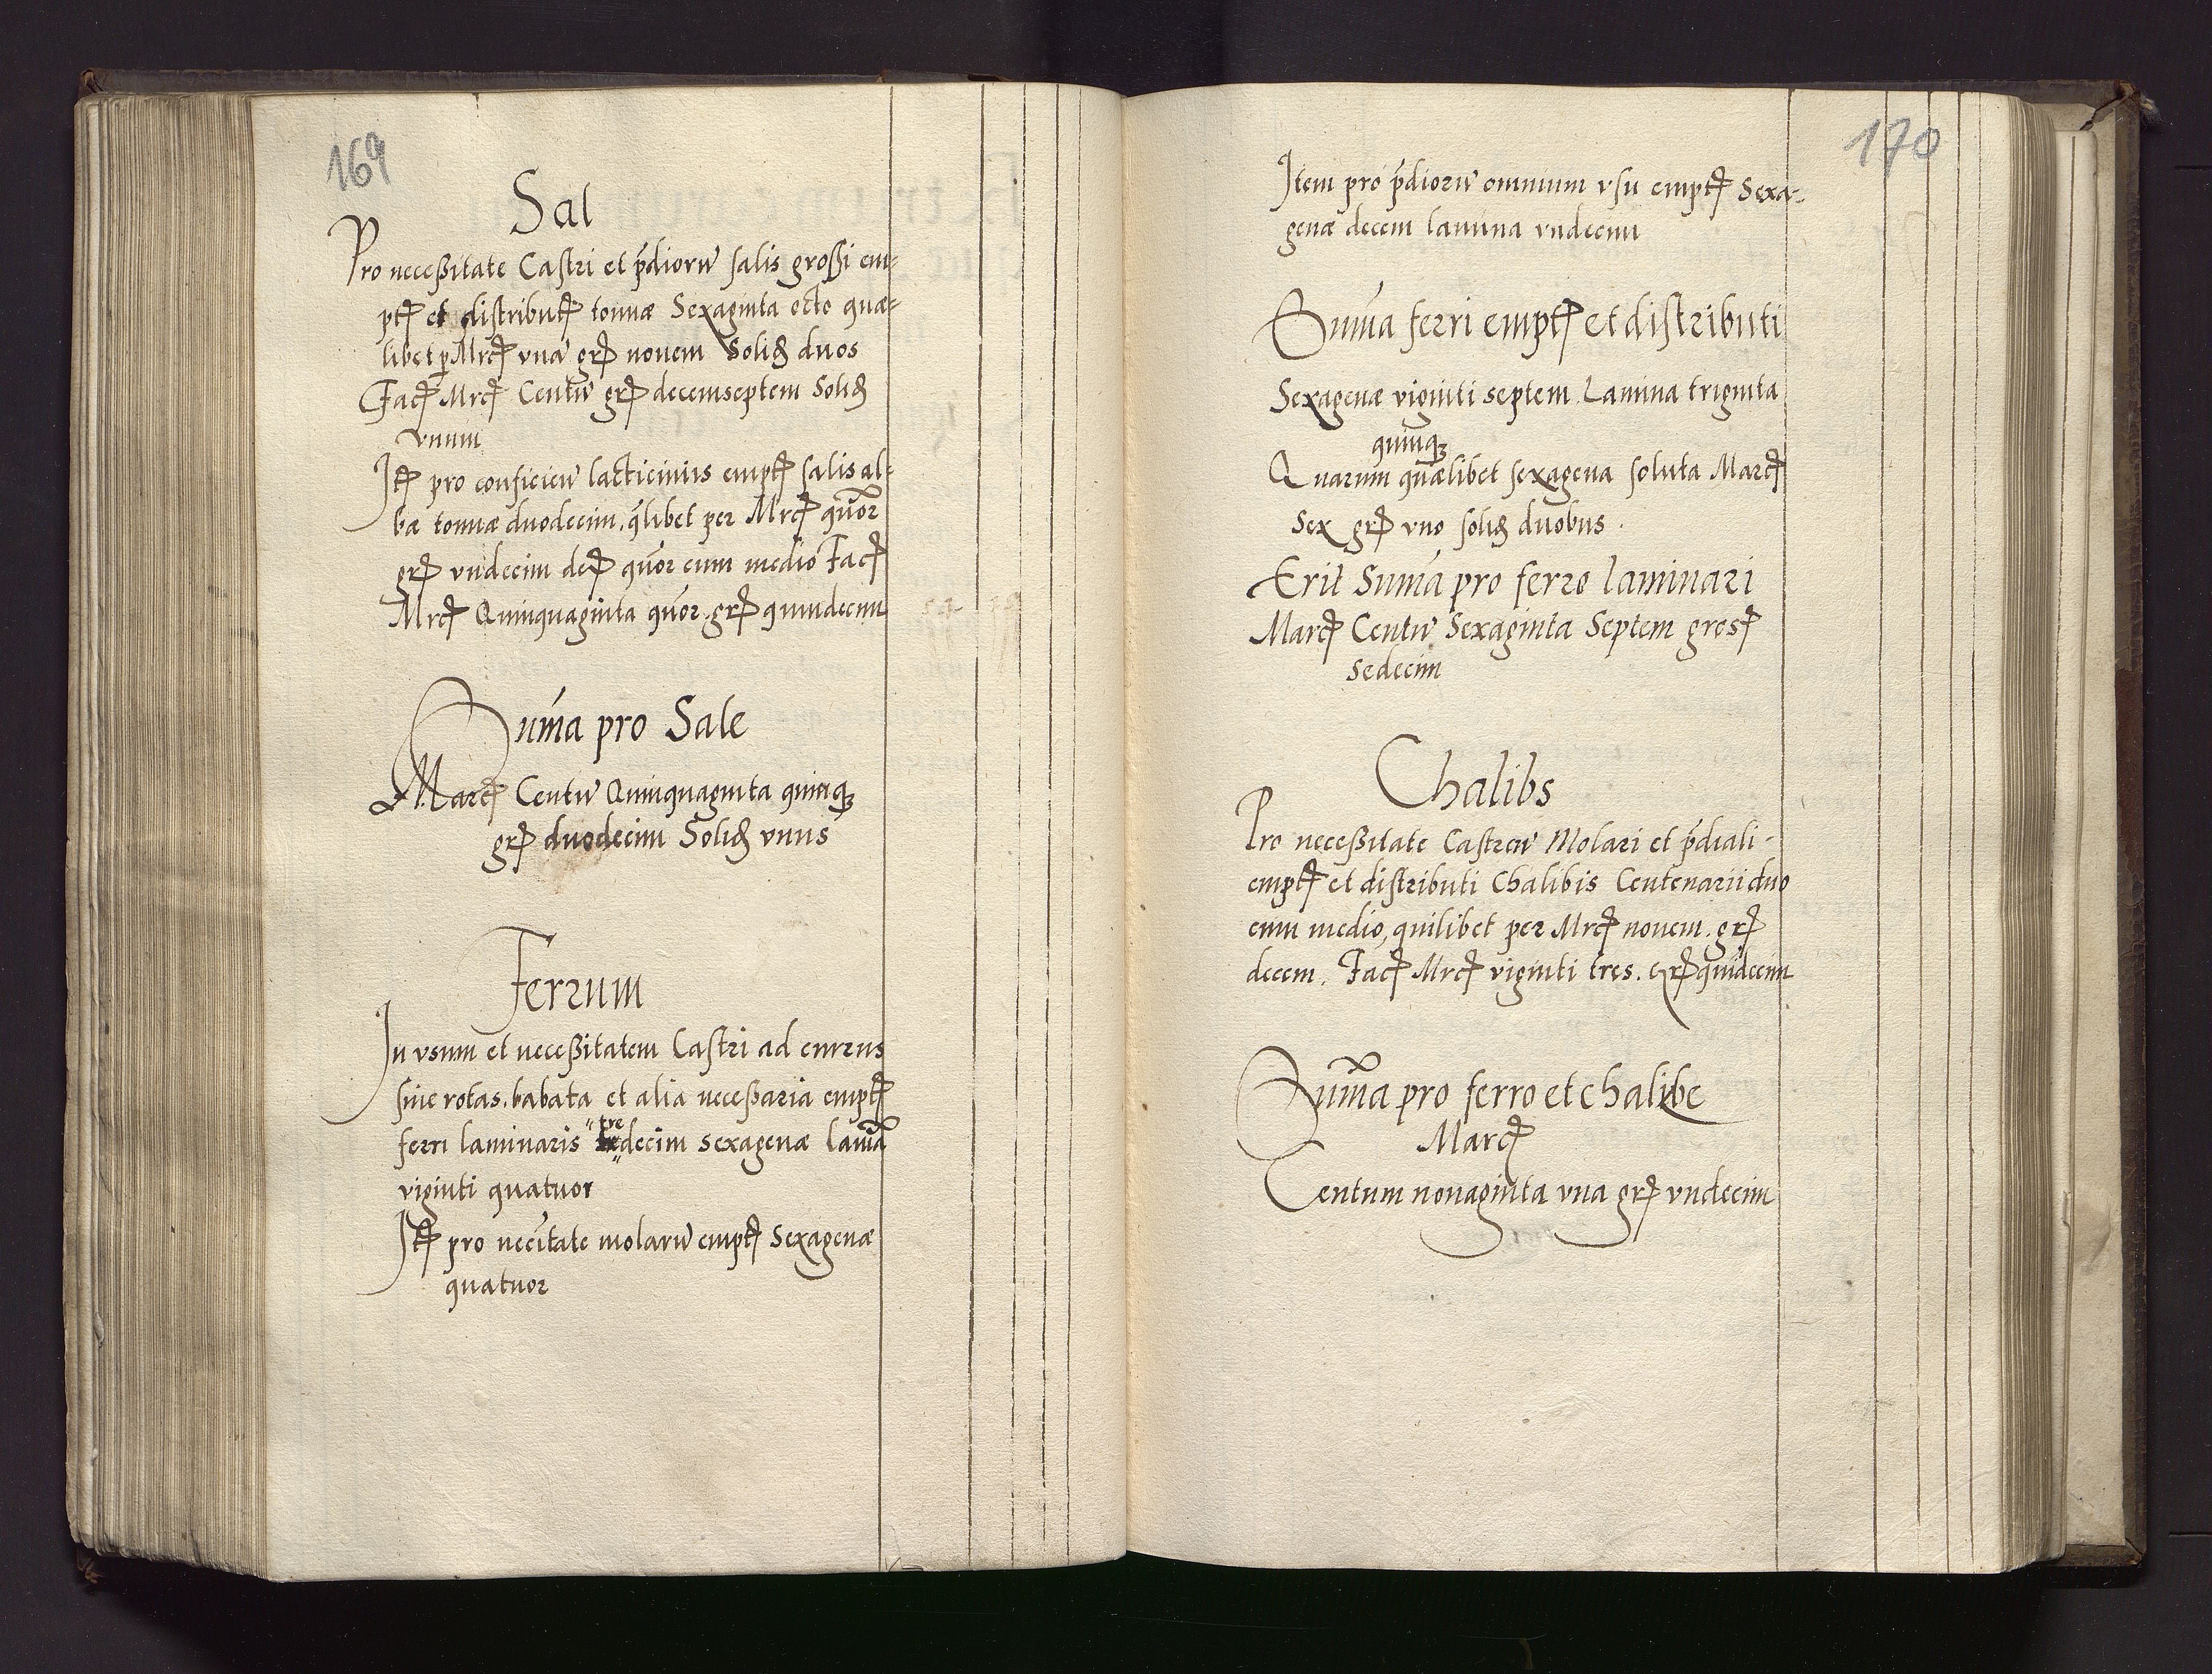 169
Sal
Pro neceßitate Castri et p̄dioru̅ salis großi em=
pt et distribut tonnæ Sexaginta octo quæ=
libet p Mrc vna gr novem Solid duos
Fac Mrc Centu̅ gr decemseptem Solid
vnum
It pro conficien̅ lacticiniis empt salis al=
bæ tonnæ duodecim, qlibet per Mrc quor
gr vndecim den quor cum medio Fac
Mrc Quinquaginta quor gr quindecim
Suma pro Sale
Marc Centu̅ Quinquaginta quinq
gr duodecim Solid vnus
Ferrum
In vsum et neceßitatem Castri ad currus
sive rotas, babata et alia neceßaria empt
ferri laminaris tredecim sexagenæ lamīa
viginti quatuor
It pro necītate molaru̅ empt Sexagenæ
quatuor
170
Item pro p̄dioru̅ omnium vsu empt Sexa=
genæ decem lamina vndecim
Suma ferri empt et distributi
Sexagenæ viginti septem Lamina triginta
quinq
Quarum quælibet sexagena soluta Marc
sex gr vno solid duobus.
Erit Suma pro ferro laminari
Marc Centu̅ Sexaginta Septem gros
sedecim
Chalibs
Pro neceßitate Castren̅ Molari et p̄diali
empt et distributi Chalibis Centenarii duo
cum medio, quilibet per Mrc novem gr
decem. Fac Mrc viginti tres. Gr quīdecim
Suma pro ferro et chalibe
Marc
Centum nonaginta vna gr vndecim